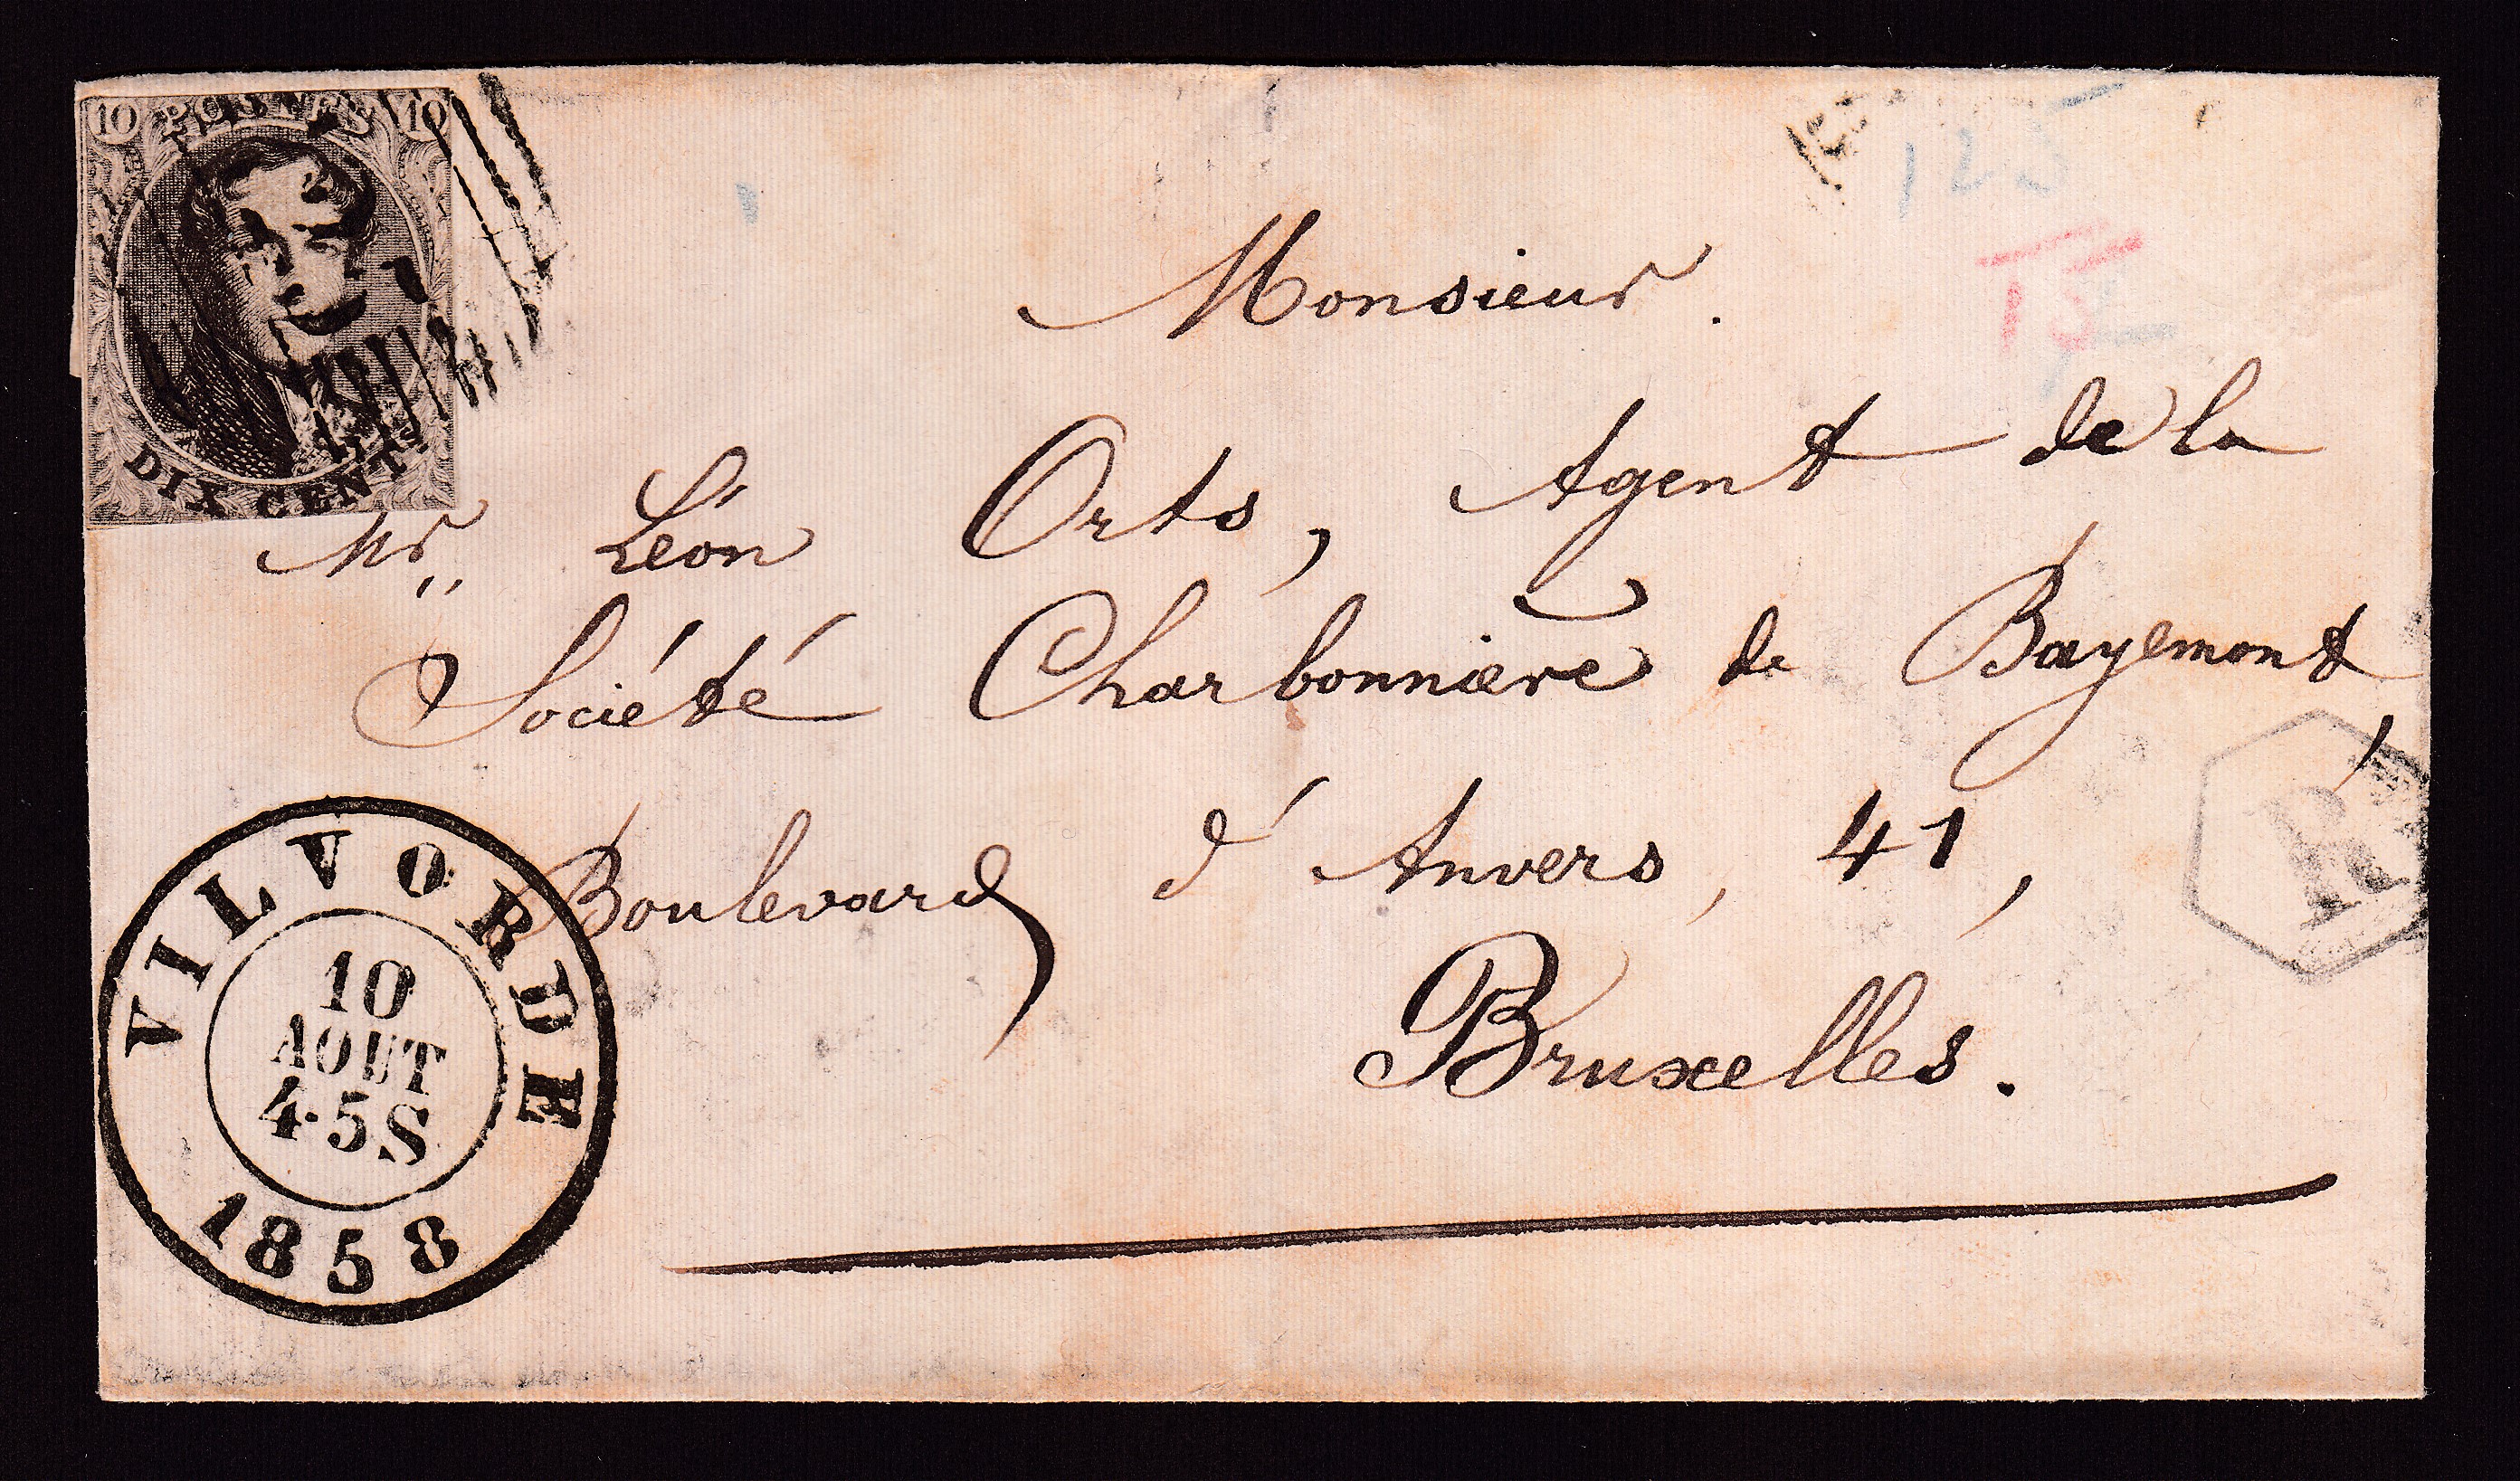 10 POSTES 10
DIX CENTS
125
15
Monsieur.
Mr Léon Orts, Agent de la
Société Charbonnière de Bayemont,
Boulevard d'Anvers, 41,
Bruxelles.
R
VILVORDE
10
AOUT
4·5S
1858